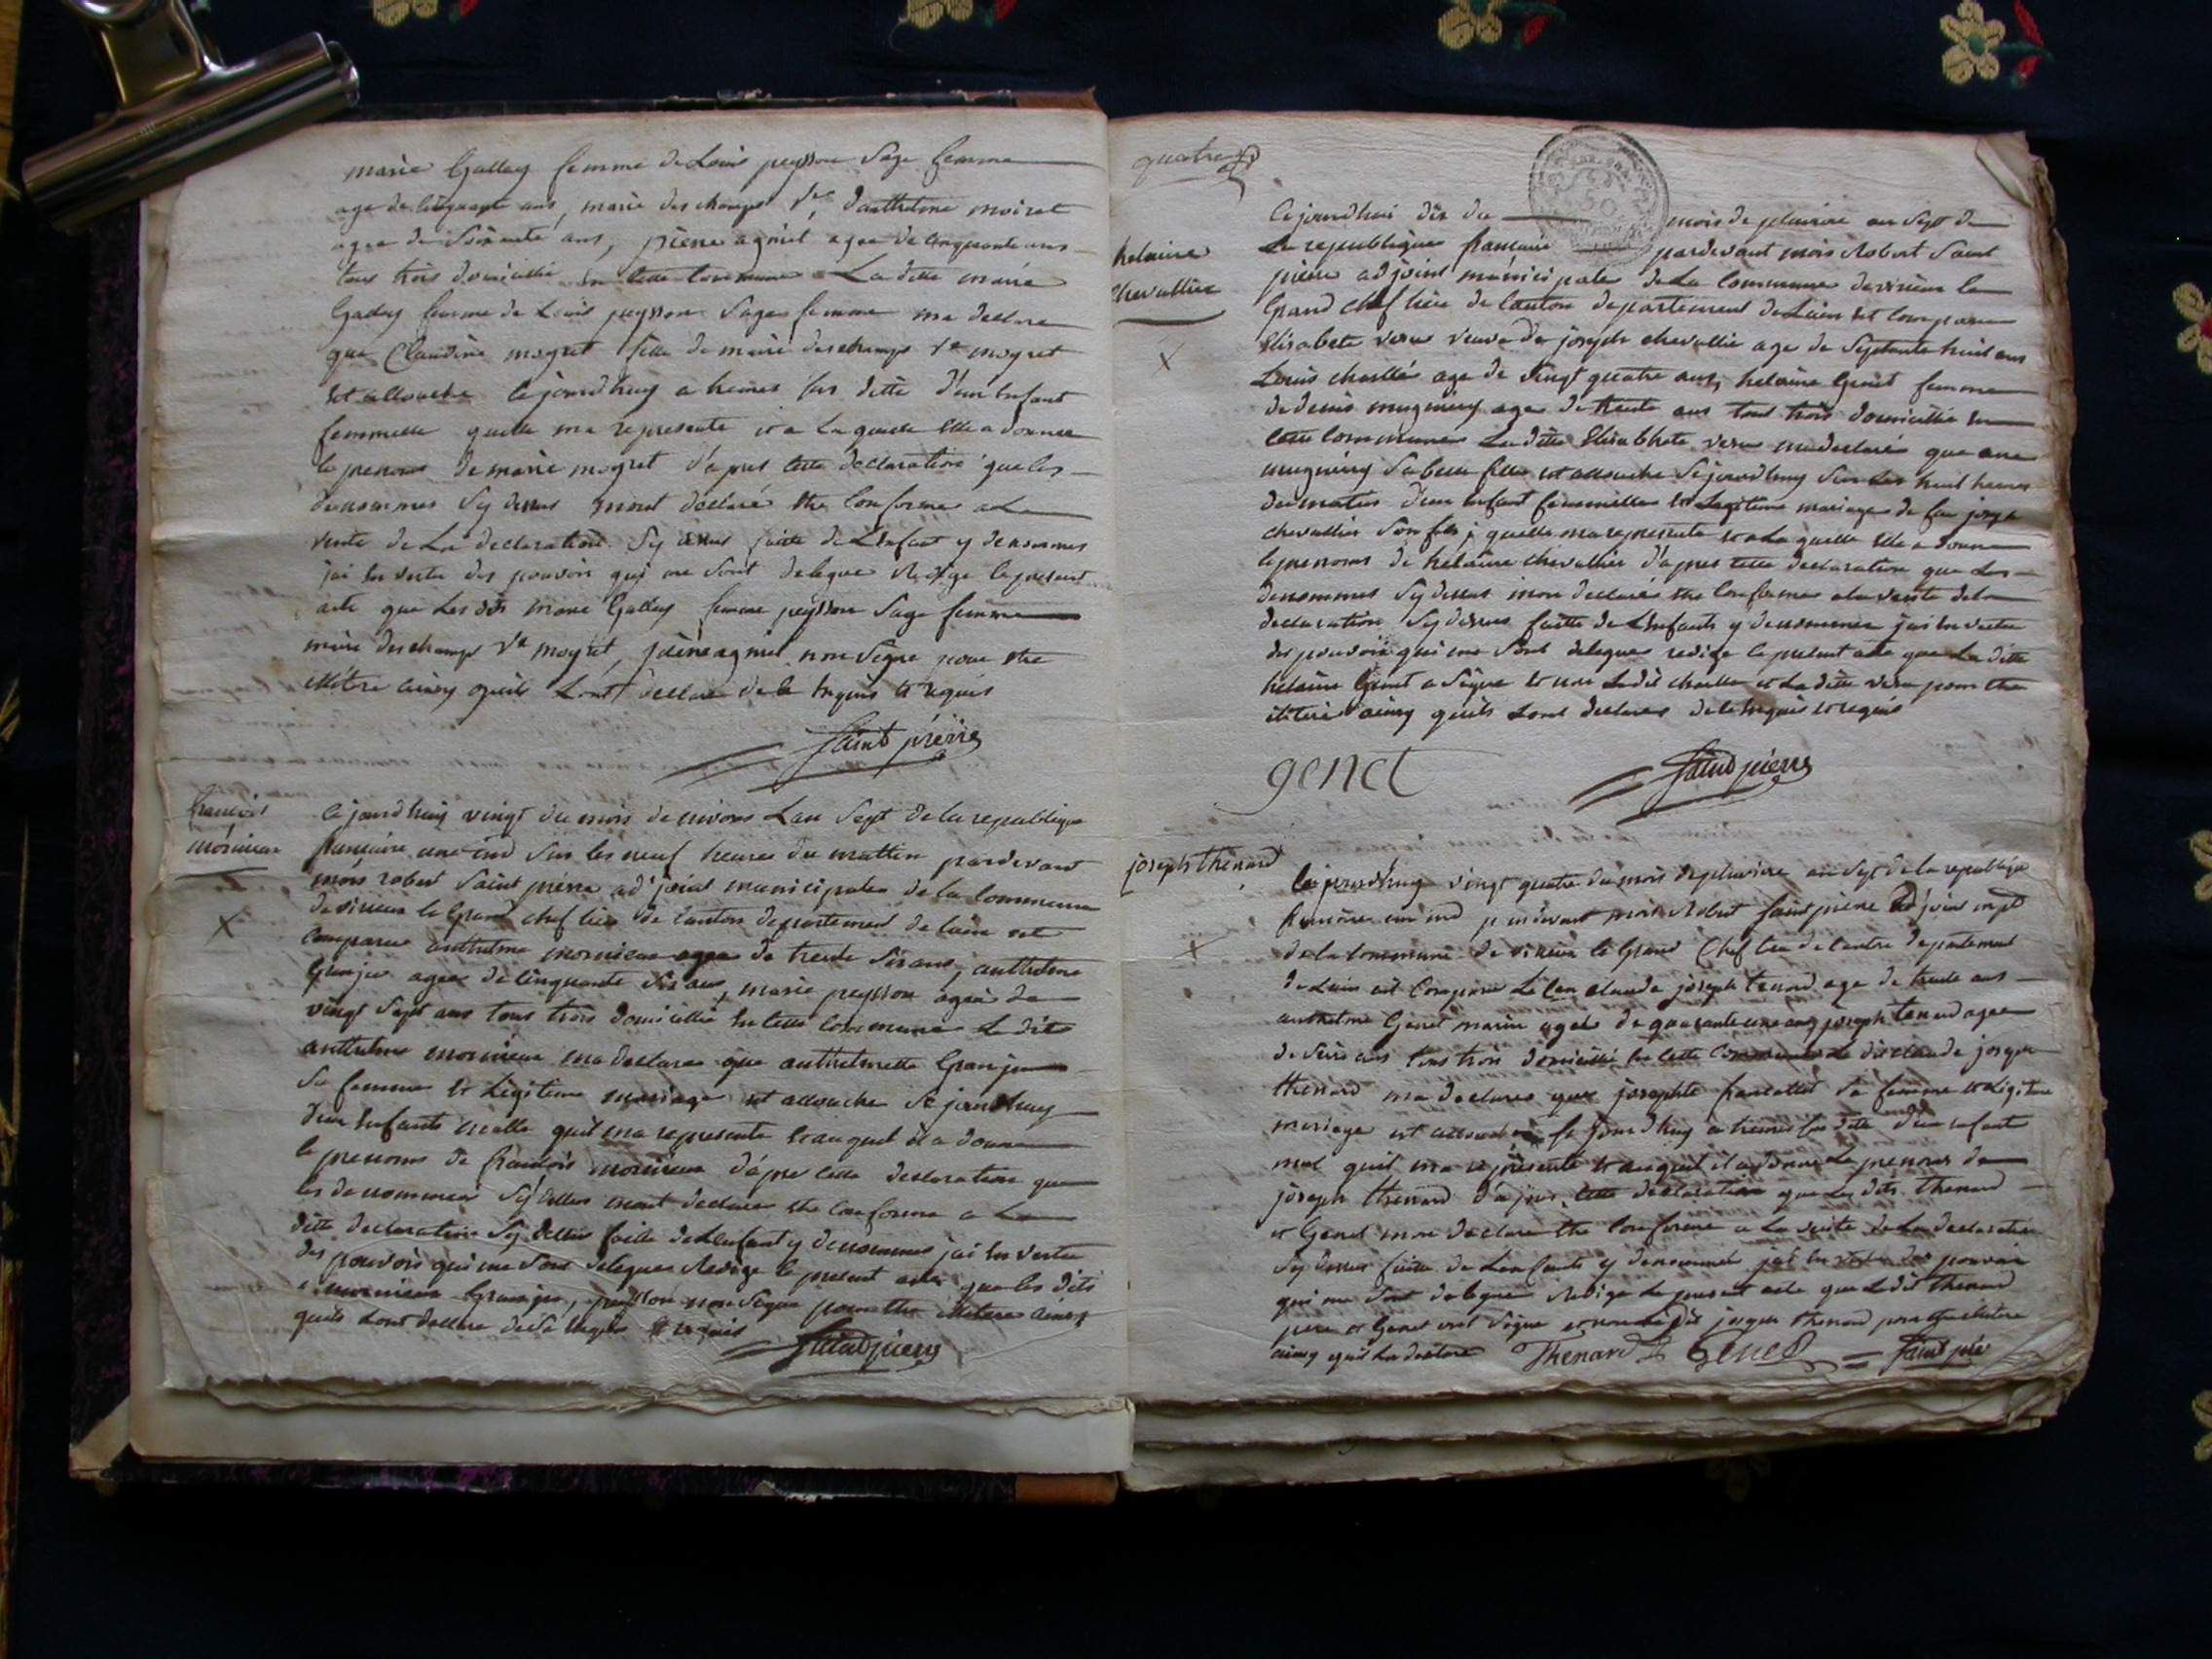 marie Gallay femme de Louis peysson sage femme
age de cinquante ans, marie deschamps Ve d'anthelme moiret
agee de soixante ans, pierre agniel agee de cinquante ans
tous trois domicillié en cette commune La ditte marie
Gallay femme de Louis peysson sage femme ma declare
que Claudine moyret fille de marie deschamps Ve moyret
est allouchee cejourdhuy a heures sus ditte d'un enfant
femmelle quelle ma represente et a La quelle elle a donnee
le prenom de marie moyret d'apres cette declaration que les
denommes sy dessus mont declaré etre conforme a La
verite de La declaration sy dessus faitte de Lenfant y denommes
jai en vertu des pouvoirs qui me sont delegue Redige le present
acte que Les dits marie Gallay femme peysson sage femme
marie deschamps Ve moyret, pierre agniel non signe pour etre
elitere ainsy quils Lont declare de ce enquis et requis
Saint pierre
francois
mornieux
cejourdhuy vingt du mois de nivose Lan sept de la republique
francaise une ind sur les neuf heures du mattin pardevant
mois robert Saint pierre adjoint municipale de la commune
de virieux le Grand chef lieu de canton departement de lain est
comparu anthelme mornieux agee de trente six ans, anthelme
Granjeu agee de cinquante six ans, marie peysson agée de
vingt sept ans tous trois domicillié en cette commune Le dit
anthelme mornieux ma declare que anthelmette Granjeu
sa femme et Legitime mariage est allouchee ce jourdhuy
d'un enfants malle quil ma represente et auquel il a donne
le prenoms de francois mornieux d'apre cette declaration que
les denommes sy dessus mont declare etre conforme a La
ditte declaration sy dessus faitte de Lenfant y denommes jai en vertu
des pouvoirs qui me sont delegues Redige le present acte que les dits
mornieux Granjeu, peysson non signe pour etre elitere ainsy
quils Lont declare de ce enquis et requis Saint pierre
quatre
helaine
chevallier
cejourdhui dix du mois de pluviose an sept de
La republique francaise pardevant mois Robert Saint
pierre adjoint municipale de La commune de virieux le
Grand chef lieu de canton departement de Lain est comparu
Elisabete veru veuve de joseph chevallie age de septante huit ans
Louis chaollé age de vingt quatre ans, helaine Genet femme
de denis mugniery agee de trente ans tous trois domicillié en
cette commune La ditte Elisabhete veru ma declaré que ane
mugniery sa belle fille est allouchee cejourdhuy sur Les huit heures
du mattin d'un enfant femmelle et Legitime mariage de feu josep
chevallier son fils quelle ma represente et a La quelle elle a donne
le prenoms de helaine chevallier d'apres cette declaration que Les
denommes sy dessus mon declarés etre conforme a la verite de la
declaration sy dessus faitte de Lenfants y denommes jai en vertu
des pouvoirs qui me sont delegues redige le present acte que La ditte
helaine Genet a signe et non Ledit chaolle et La ditte veru pour etre
elitere ainsy quils Lont declares de ce enquis et requis
genet Saint pierre
joseph thenard
cejourdhuy vingt quatre du mois de pluviose an sept de la republique
francaise un ind pardevant mois Robert Saint pierre adjoint mpl
de la commune de virieux le Grand Chef lieu de canton departement
de Lain est comparu Le Cen claude joseph tenard age de trente ans
anthelme Genet marin agee de quarante une ans joseph tenard agee
de seize ans tous trois domicillié en cette commune Le dit claude joseph
thenard ma declares que josephte francallet sa femme et Legitime
mariage est allouchee ce jourdhuy a heures sus dite d'un enfant
mal quil ma represente et auquel il a donne Le prenoms de
joseph thenard d'apres cette declaration que Les dits thenard
et Genet mon declare etre conforme a La verite de La declaration
sy dessus faitte de Lenfants y denommés jai en vertu des pouvoir
qui me sont delegue Redige Le present acte que Ledit thenard
pere et Genet ont signe et non Le dit joseph thenard pour etre elitere
ainsy quil La declare Thenard Genet Saint pier